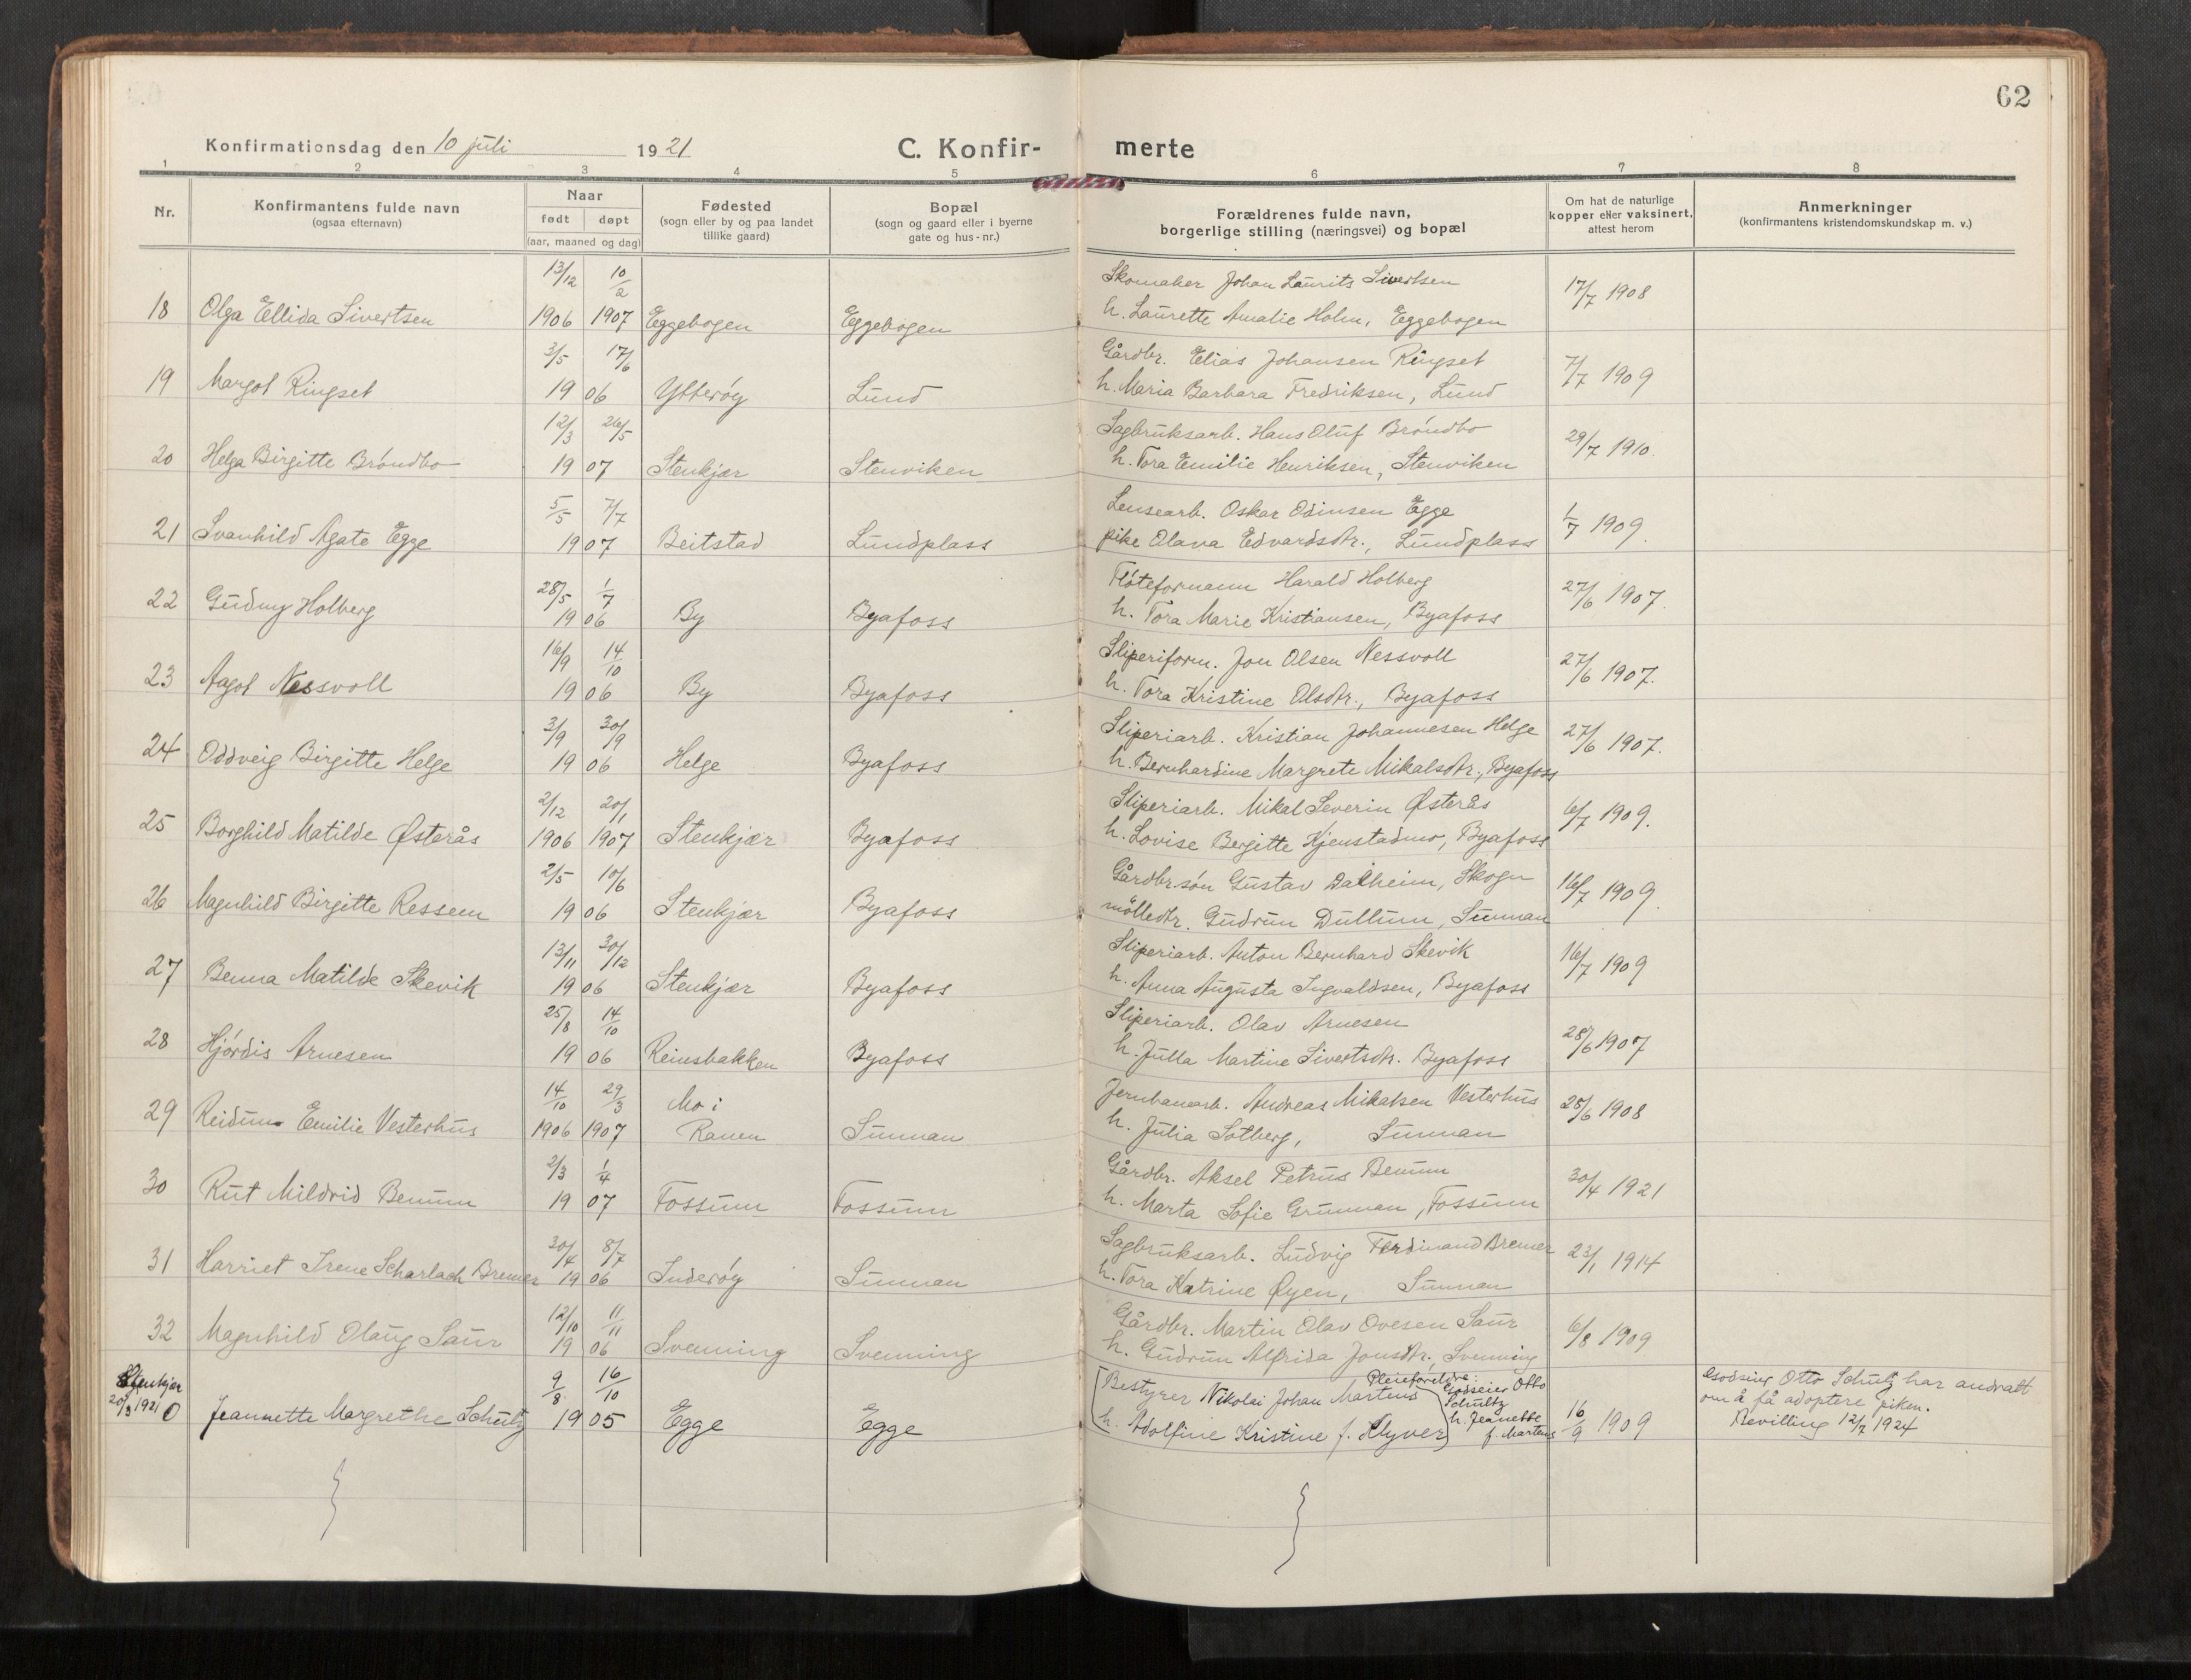 62
Konfirmationsdag den 10 juli 1921 C. Konfir- merte
1 2 3 4 5 6 7 8
Nr.
Konfirmantens fulde navn
(ogsaa efternavn)
Naar
født døpt
(aar, maaned og dag)
Fødested
(sogn eller by og paa landet
tillike gaard)
Bopæl
(sogn og gaard eller i byerne
gate og hus-nr.)
Forældrenes fulde navn,
borgerlige stilling (næringsvei) og bopæl
Om hat de naturlige
kopper eller vaksinert,
attest herom
Anmerkninger
(konfirmantens kristendomskundskap m. v.)
13/12 10/2 Skomaker Johan Laurits Sivertsen 17/7 1908
18 Olga Ellida Sivertsen 1906 1907 Eggebogen Eggebogen h. Laurette Amalie Holm, Eggebogen
3/5 17/6 Gårdbr. Elias Johansen Ringset 7/7 1909
19 Margot Ringset 19 06 Ytterøy Lund h. Maria Barbara Fredriksen, Lund
12/3 26/5 Sagbruksarb. Hans Oluf Bröndbo 29/7 1910.
20 Helga Birgitte Bröndbo 19 07 Stenkjær Stenviken h. Tora Emilie Henriksen, Stenviken
5/5 7/7 Lensearb. Oskar Odinsen Egge 1/7 1909.
21 Svanhild Agate Egge 19 07 Beitstad Lundplass pike Olava Edvardsdtr., Lundplass
28/5 1/7 Flöteformann Harald Holberg 27/6 1907.
22 Gudny Holberg 19 06 By Byafoss h. Tora Marie Kristiansen, Byafoss
16/9 14/10 Sliperiform. Jon Olsen Nessvoll 27/6 1907.
23 Aagot Nessvoll 19 06 By Byafoss h. Tora Kristine Olsdtr., Byafoss
3/9 30/9 Sliperiarb. Kristian Johannesen Helge 27/6 1907.
24 Oddveig Birgitte Helge 19 06 Helge Byafoss h. Bernhardine Margrete Mikalsdtr., Byafoss
2/12 20/1 Sliperiarb. Mikal Severin Østerås 6/7 1909.
25 Borghild Matilde Østerås 1906 1907 Stenkjær Byafoss h. Lovise Bergitte Kjenstadmo, Byafoss
2/5 10/6 Gårdbr.sön Gustav Dalheim, Skogn 16/7 1909.
26 Magnhild Birgitte Ressem 19 06 Stenkjær Byafoss mölledtr. Gudrun Dullum, Sunnan
13/11 30/12 Sliperiarb. Anton Bernhard Skevik 16/7 1909
27 Benna Matilde Skevik 19 06 Stenkjær Byafoss h. Anna Augusta Ingvaldsen, Byafoss
25/8 14/10 Sliperiarb. Olav Arnesen 28/6 1907
28 Hjördis Arnesen 19 06 Reinsbakken Byafoss h. Julla Martine Sivertsdtr. Byafoss
14/10 29/3 Mo i Jernbanearb. Andreas Mikalsen Vesterhus 25/6 1908
29 Reidun Emilie Vesterhus 1906 1907 Ranen Sunnan h. Julia Solberg, Sunnan
2/3 1/4 Gårdbr. Aksel Petrus Benum 30/4 1921
30 Rut Mildrid Benum 19 07 Fossum Fossum h. Marta Sofie Grunnan, Fossum
30/4 8/7 Sagbruksarb. Ludvig Ferdinand Bremer 23/1 1914
31 Harriet Irene Scharlach Bremer 19 06 Inderøy Sunnan h. Tora Katrine Øyen, Sunnan
12/10 11/11 Gårdbr. Martin Olav Ovesen Saur 6/8 1909
32 Magnhild Olaug Saur 19 06 Svenning Svenning h. Gudrun Alfrida Jonsdtr., Svenning
Stenkjær 9/8 16/10 Bestyrer Nikolai Johan Martens Pleieforeldre: Godseier Otto Schultz Godseier Otto Schultz har andratt
20/3 1921 0 Jeannette Margrethe Schultz 19 05 Egge Egge h. Adolfine Kristine f. Klyver h. Jeanette f. Martens 16/9 1909 om å få adoptere piken.
Bevilling 12/7 1924